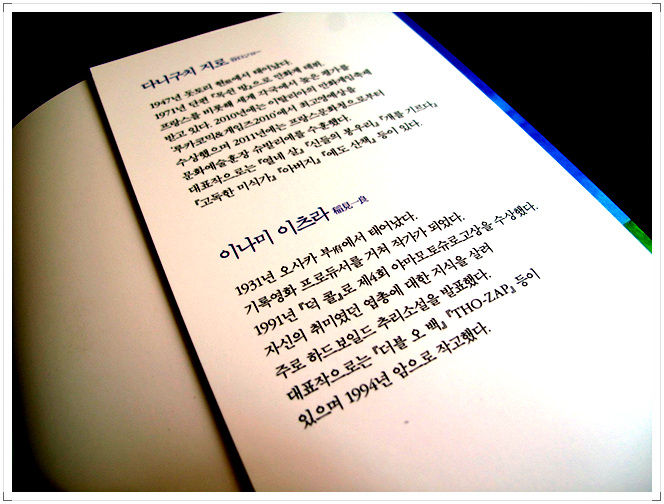 다니구치 지로 谷口ジロー
1947년 돗토리 현에서 태어났다.
1971년 단편 『목쉰 방』으로 만화계 데뷔.
프랑스를 비롯해 세계 각국에서 높은 평가를
받고 있다. 2010년에는 이탈리아의 만화게임축제
'루카코믹&게임즈2010'에서 최고명예상을
수상했으며 2011년에는 프랑스문화청으로부터
문화예술훈장 슈발리에를 수훈했다.
대표작으로는 『열네 살』 『신들의 봉우리』 『개를 기르다』
『고독한 미식가』 『아버지』 『에도 산책』 등이 있다.
이나미 이츠라 稲見一良
1931년 오사카 부府에서 태어났다.
기록영화 프로듀서를 거쳐 작가가 되었다.
1991년 『덕 콜』로 제4회 야마모토슈고로상을 수상했다.
자신의 취미였던 엽총에 대한 지식을 살려
주로 하드보일드 추리소설을 발표했다.
대표작으로는 『더블 오 백』 『THO-ZAP』 등이
있으며 1994년 암으로 작고했다.